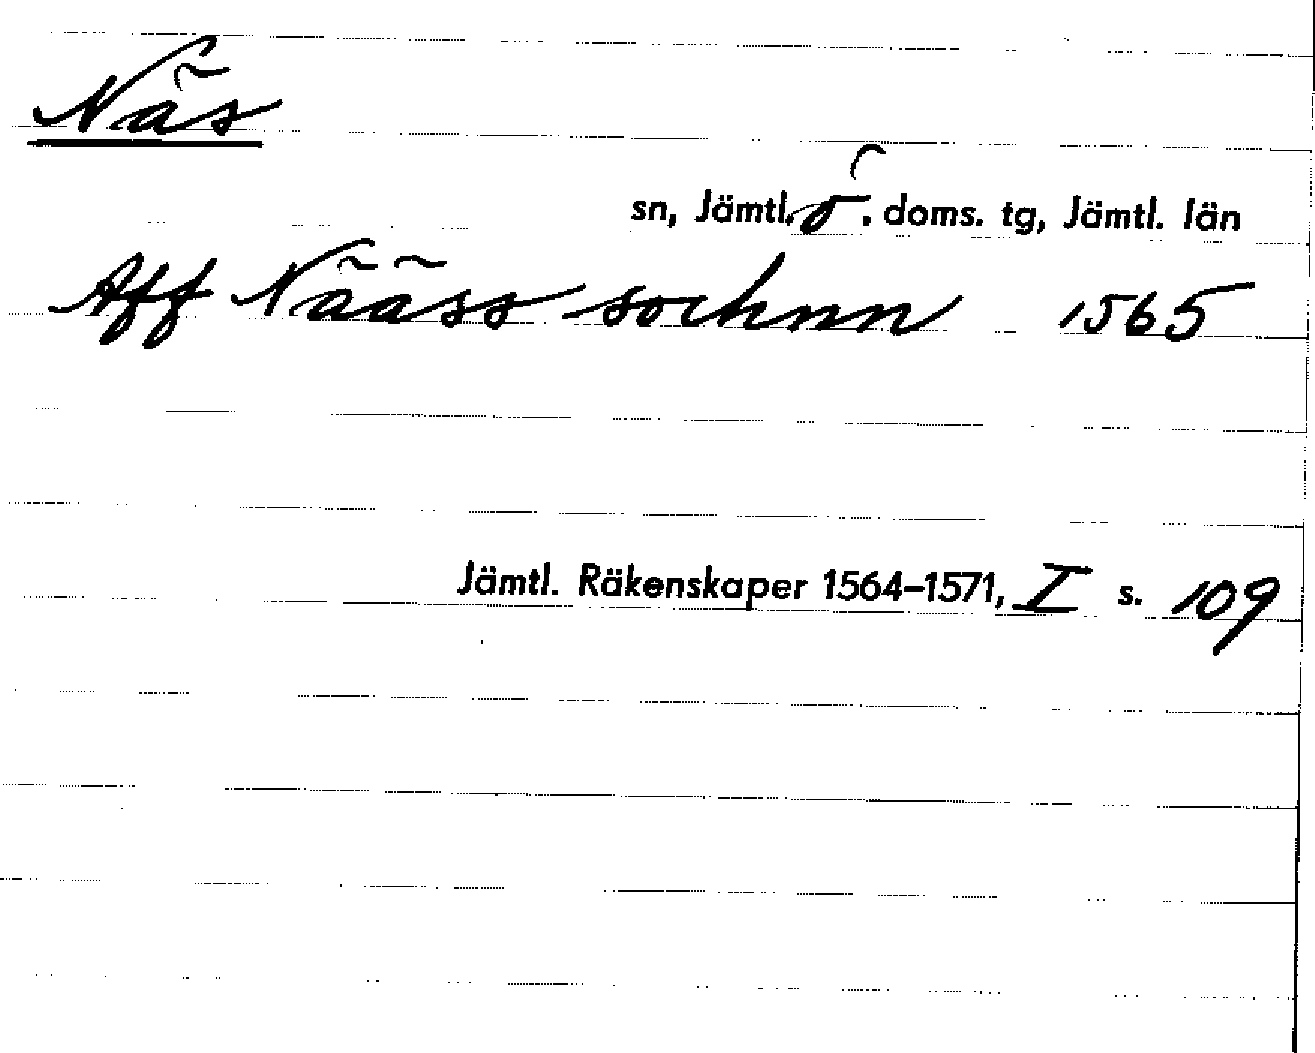 Näs
sn, Jämtl. ö. doms. tg, Jämtl. län
Aff Nääss sochnn 1565
Jämtl. Räkenskaper 1564–1571, I s. 109